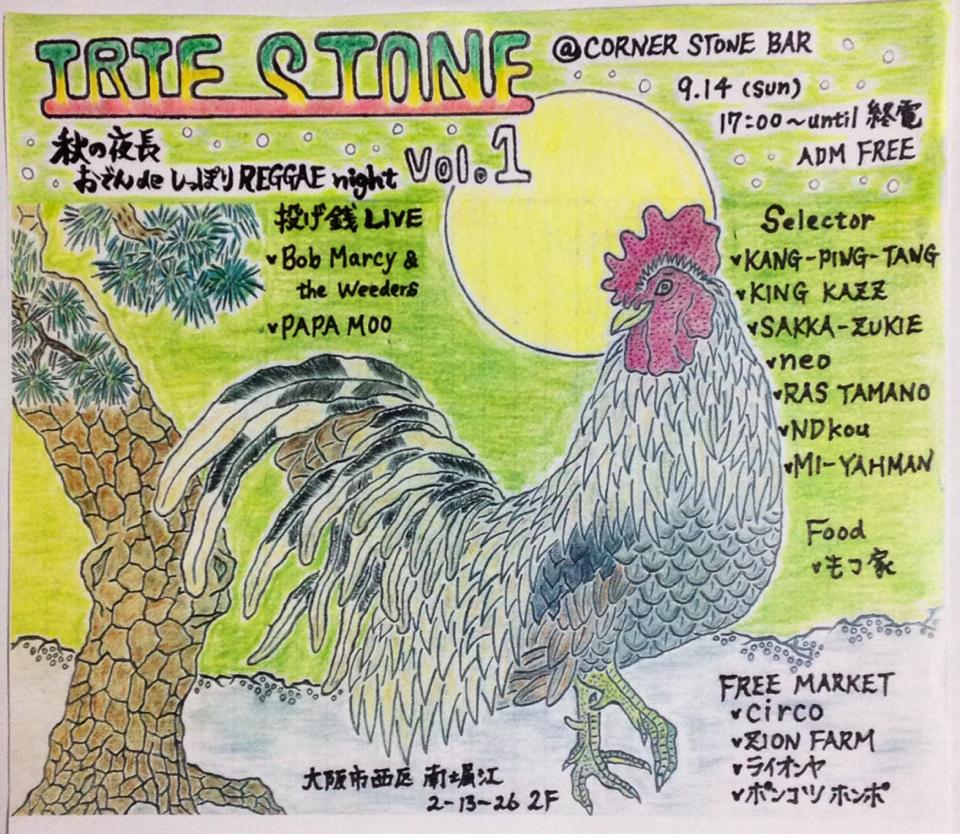 IRIE STONE
@CORNER STONE BAR
9.14 (sun)
17:00~until 終電
ADM FREE
秋の夜長
おでん de しっぽり REGGAE night
Vol.1
投げ銭 LIVE
Bob Marcy &
the Weeders
PAPA MOO
Selector
KANG-PING-TANG
KING KAZZ
SAKKA-ZUKIE
neo
RAS TAMANO
NDkou
MI-YAHMAN
Food
モコ家
FREE MARKET
circo
ZION FARM
ライオンヤ
ポンコツ ホンポ
大阪市西区 南堀江
2-13-26 2F